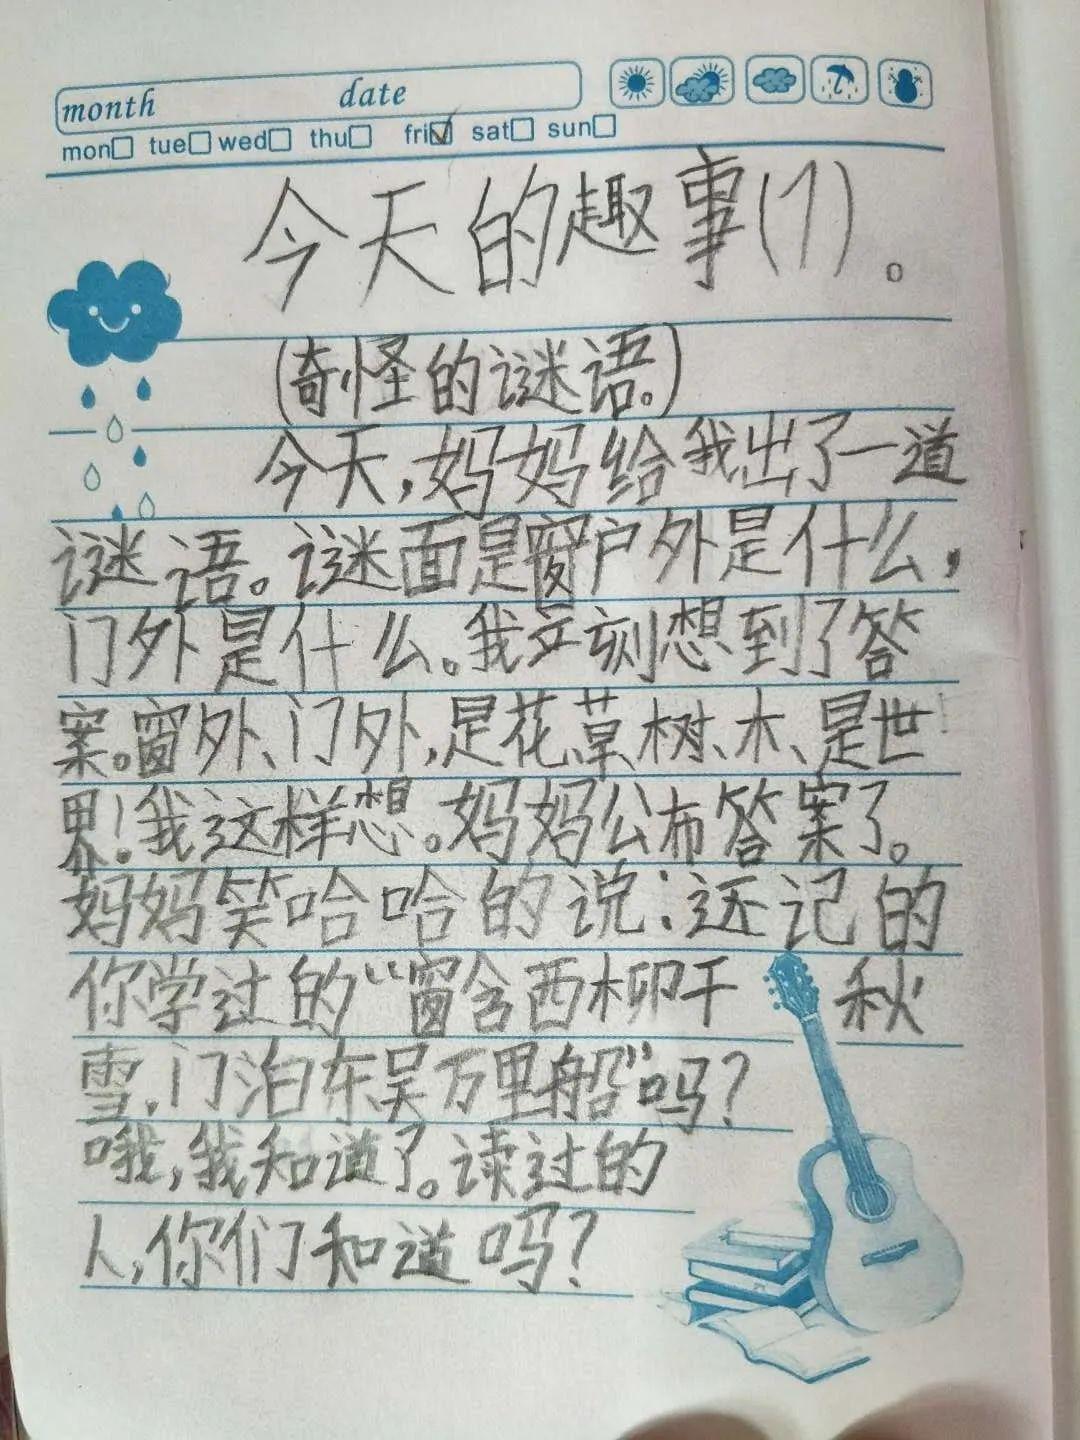 month date
mon□ tue□ wed□ thu□ fri☑ sat□ sun□
今天的趣事(1)。
(奇怪的谜语。)
今天,妈妈给我出了一道
谜语。谜面是窗户外是什么,
门外是什么。我立刻想到了答
案。窗外、门外,是花、草、树、木、是世
界!我这样想。妈妈公布答案了。
妈妈笑哈哈的说:还记的
你学过的“窗含西柳千秋
雪,门泊东吴万里船”吗?
哦,我知道了。读过的
人,你们知道吗?